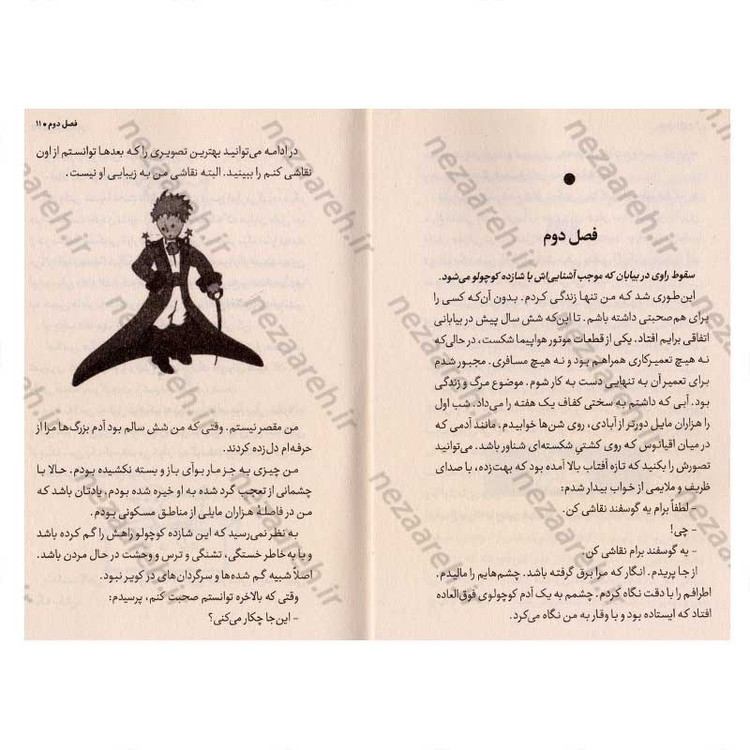 ●
فصل دوم
سقوط راوی در بیابان که موجب آشنایی‌اش با شازده کوچولو می‌شود.
این‌طوری شد که من تنها زندگی کردم. بدون آن‌که کسی را
برای هم‌صحبتی داشته باشم. تا این‌که شش سال پیش در بیابانی
اتفاقی برایم افتاد. یکی از قطعات موتور هواپیما شکست، در حالی‌که
نه هیچ تعمیرکاری همراهم بود و نه هیچ مسافری. مجبور شدم
برای تعمیر آن به تنهایی دست به کار شوم. موضوع مرگ و زندگی
بود. آبی که داشتم به سختی کفاف یک هفته را می‌داد. شب اول
را هزاران مایل دورتر از آبادی، روی شن‌ها خوابیدم. مانند آدمی که
در میان اقیانوس که روی کشتیِ شکسته‌ای شناور باشد. می‌توانید
تصورش را بکنید که تازه آفتاب بالا آمده بود که بهت‌زده، با صدای
ظریف و ملایمی از خواب بیدار شدم:
- لطفاً برام یه گوسفند نقاشی کن.
- چی!
- یه گوسفند برام نقاشی کن.
از جا پریدم. انگار که مرا برق گرفته باشد. چشم‌هایم را مالیدم،
اطرافم را با دقت نگاه کردم. چشمم به یک آدم کوچولوی فوق‌العاده
افتاد که ایستاده بود و با وقار به من نگاه می‌کرد.
فصل دوم ● ۱۱
در ادامه می‌توانید بهترین تصویری را که بعدها توانستم از اون
نقاشی کنم را ببینید. البته نقاشی من به زیبایی او نیست.
من مقصر نیستم. وقتی که من شش سالم بود آدم بزرگ‌ها مرا از
حرفه‌ام دل‌زده کردند.
من چیزی به جز مار بوآی باز و بسته نکشیده بودم. حالا با
چشمانی از تعجب گرد شده به او خیره شده بودم. یادتان باشد که
من در فاصلهٔ هزاران مایلی از مناطق مسکونی بودم.
به نظر نمی‌رسید که این شازده کوچولو راهش را گم کرده باشد
و یا به خاطر خستگی، تشنگی و ترس و وحشت در حال مردن باشد.
اصلاً شبیه گم شده‌ها و سرگردان‌های در کویر نبود.
وقتی که بالاخره توانستم صحبت کنم، پرسیدم:
- این‌جا چکار می‌کنی؟
nezaareh.ir
nezaareh.ir
nezaareh.ir
nezaareh.ir
nezaareh.ir
nezaareh.ir